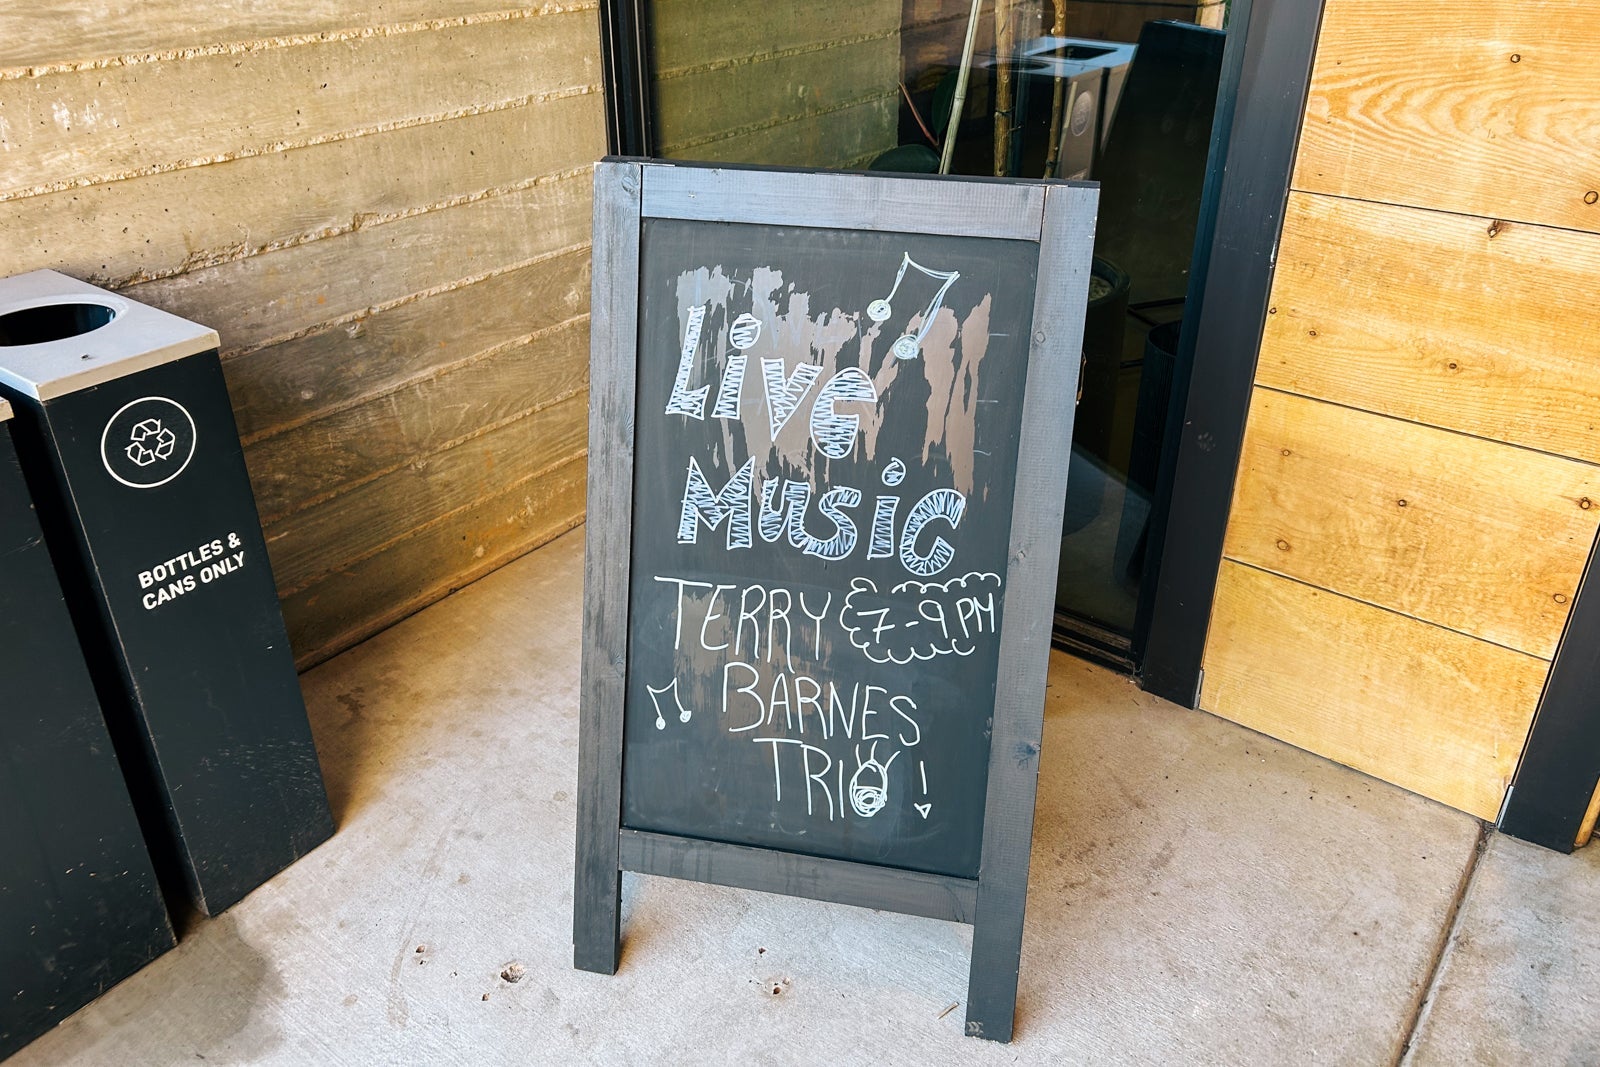 Live
Music
TERRY 7-9 PM
BARNES
TRIO!
BOTTLES &
CANS ONLY